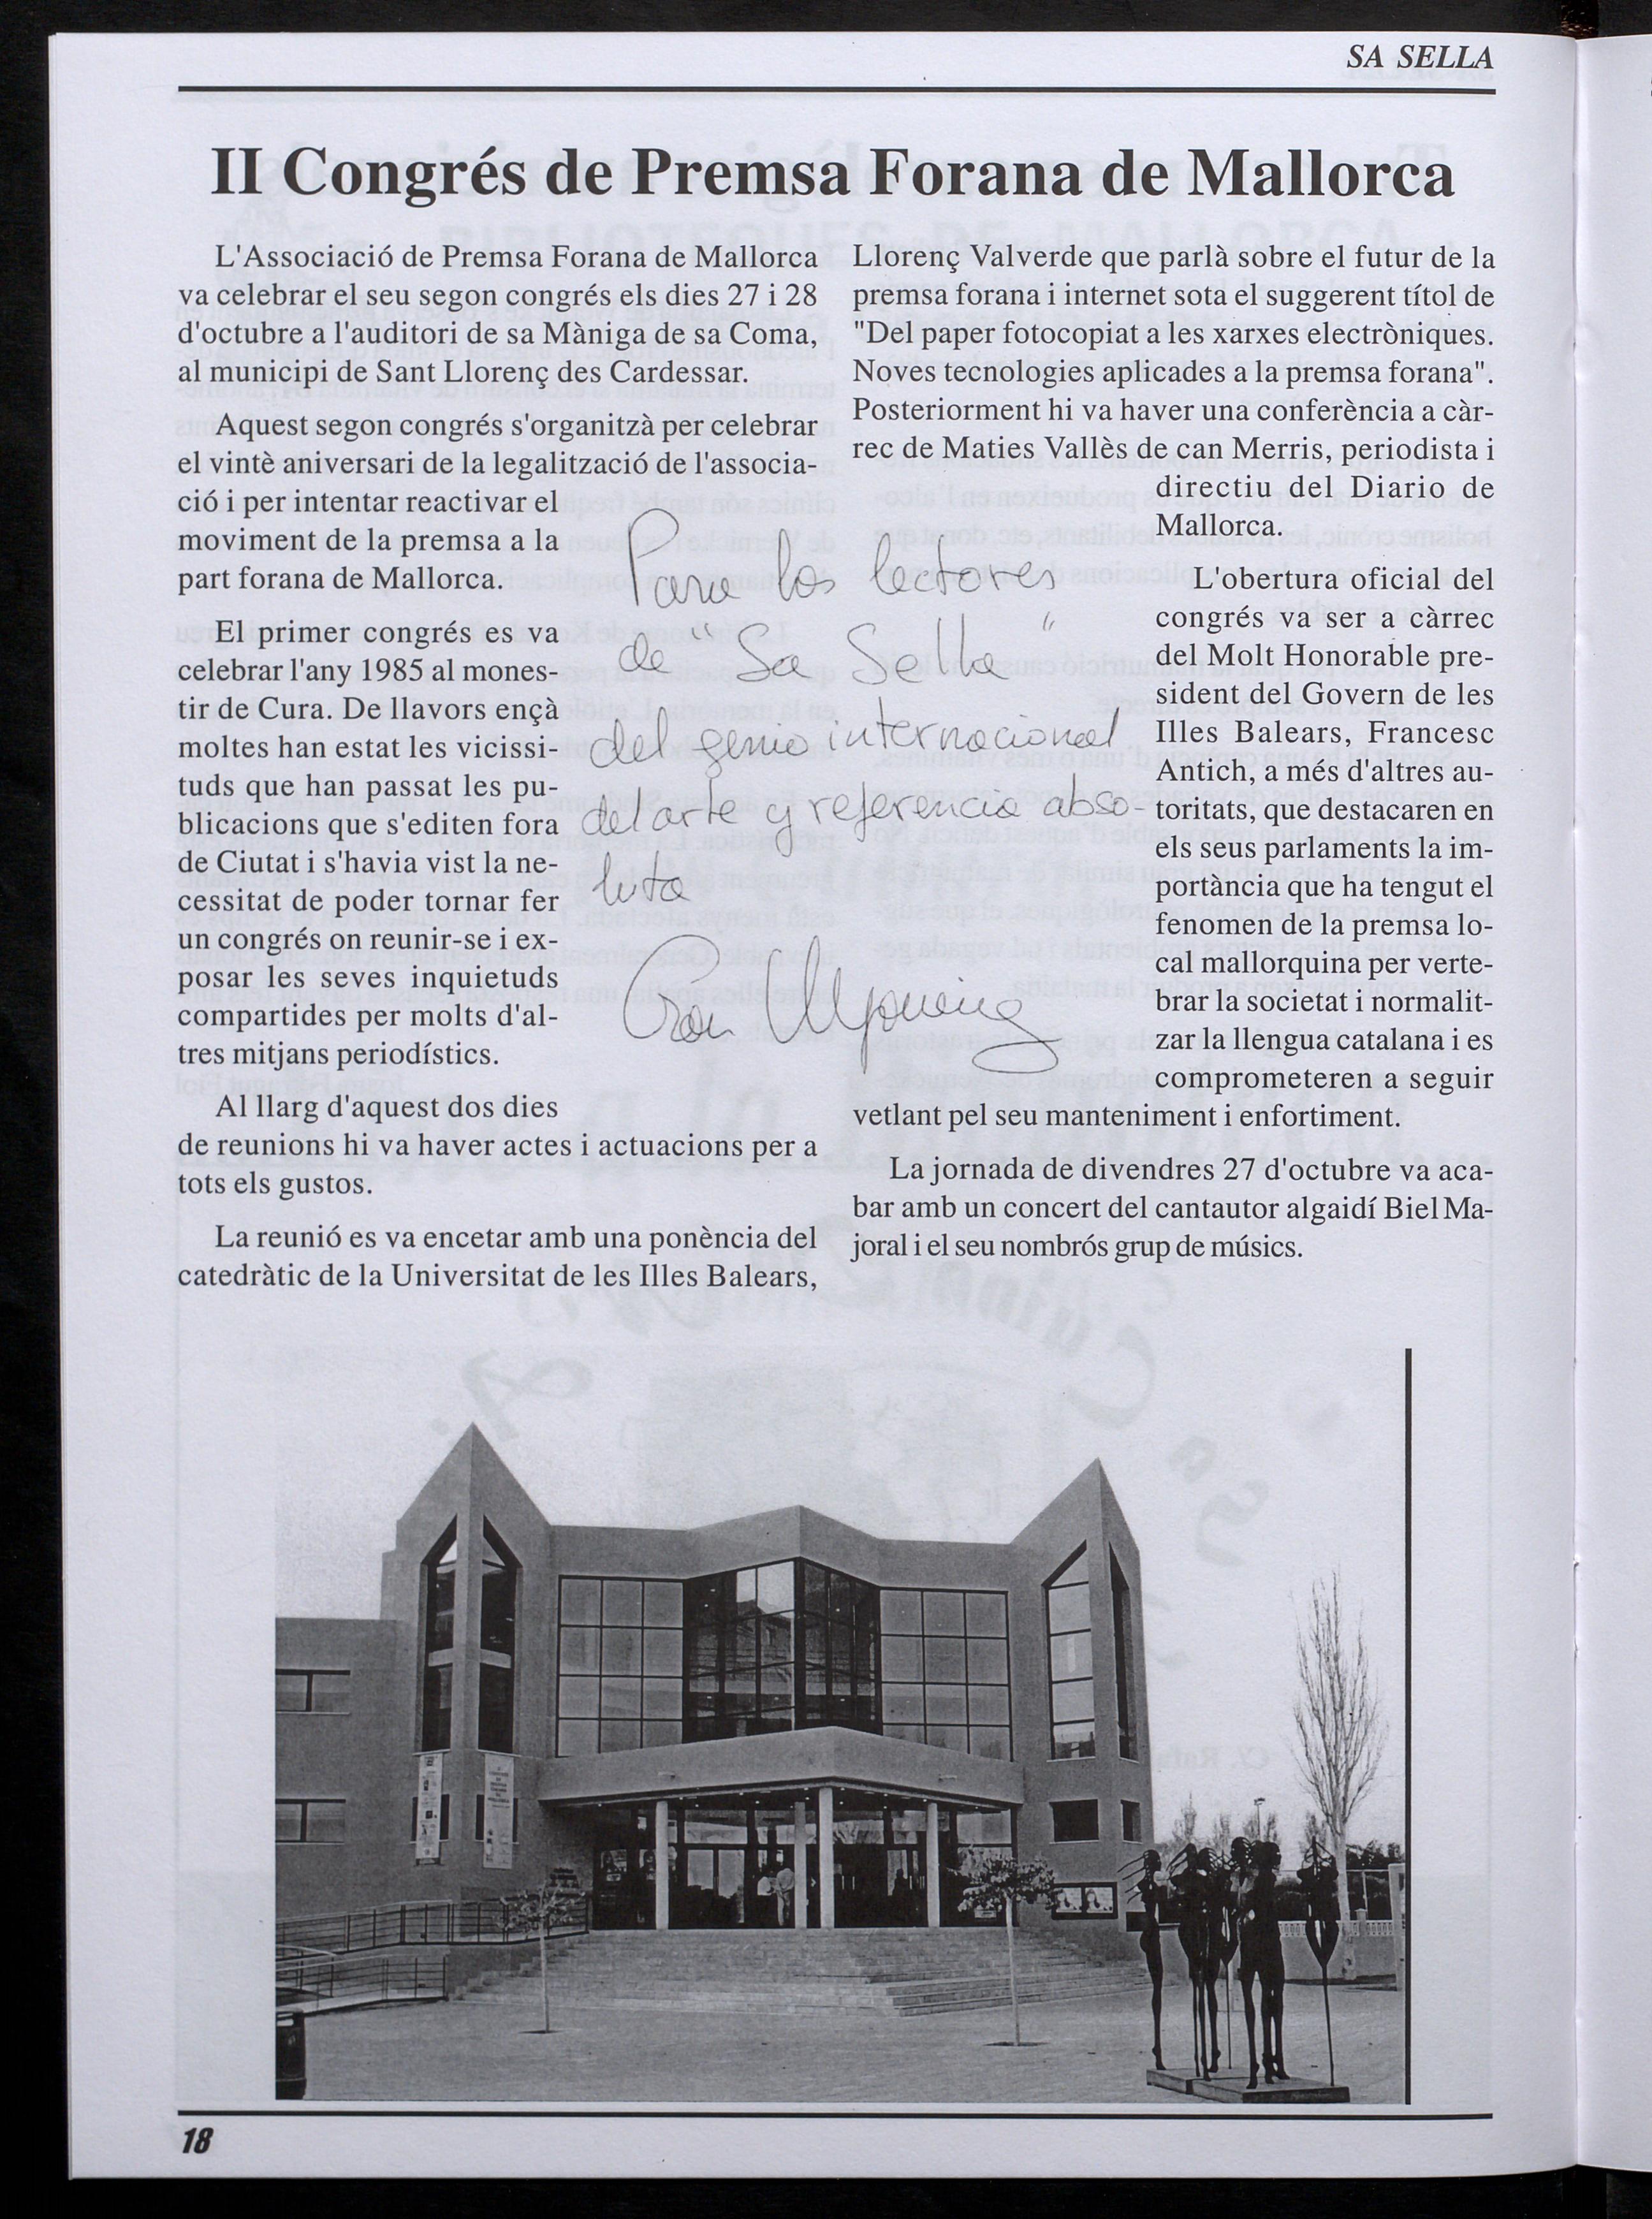 SA SELLA
II Congrés de Premsa Forana de Mallorca
L'Associació de Premsa Forana de Mallorca
va celebrar el seu segon congrés els dies 27 i 28
d'octubre a l'auditori de sa Màniga de sa Coma,
al municipi de Sant Llorenç des Cardessar.
Aquest segon congrés s'organitzà per celebrar
el vintè aniversari de la legalització de l'associa-
ció i per intentar reactivar el
moviment de la premsa a la
part forana de Mallorca.
El primer congrés es va
celebrar l'any 1985 al mones-
tir de Cura. De llavors ençà
moltes han estat les vicissi-
tuds que han passat les pu-
blicacions que s'editen fora
de Ciutat i s'havia vist la ne-
cessitat de poder tornar fer
un congrés on reunir-se i ex-
posar les seves inquietuds
compartides per molts d'al-
tres mitjans periodístics.
Al llarg d'aquest dos dies
de reunions hi va haver actes i actuacions per a
tots els gustos.
La reunió es va encetar amb una ponència del
catedràtic de la Universitat de les Illes Balears,
Para los lectores
de "Sa Sella"
del genio internacional
del arte y referencia abso-
luta
Llorenç Valverde que parlà sobre el futur de la
premsa forana i internet sota el suggerent títol de
"Del paper fotocopiat a les xarxes electròniques.
Noves tecnologies aplicades a la premsa forana".
Posteriorment hi va haver una conferència a càr-
rec de Maties Vallès de can Merris, periodista i
directiu del Diario de
Mallorca.
L'obertura oficial del
congrés va ser a càrrec
del Molt Honorable pre-
sident del Govern de les
Illes Balears, Francesc
Antich, a més d'altres au-
toritats, que destacaren en
els seus parlaments la im-
portància que ha tengut el
fenomen de la premsa lo-
cal mallorquina per verte-
brar la societat i normalit-
zar la llengua catalana i es
comprometeren a seguir
vetlant pel seu manteniment i enfortiment.
La jornada de divendres 27 d'octubre va aca-
bar amb un concert del cantautor algaidí Biel Ma-
joral i el seu nombrós grup de músics.
18